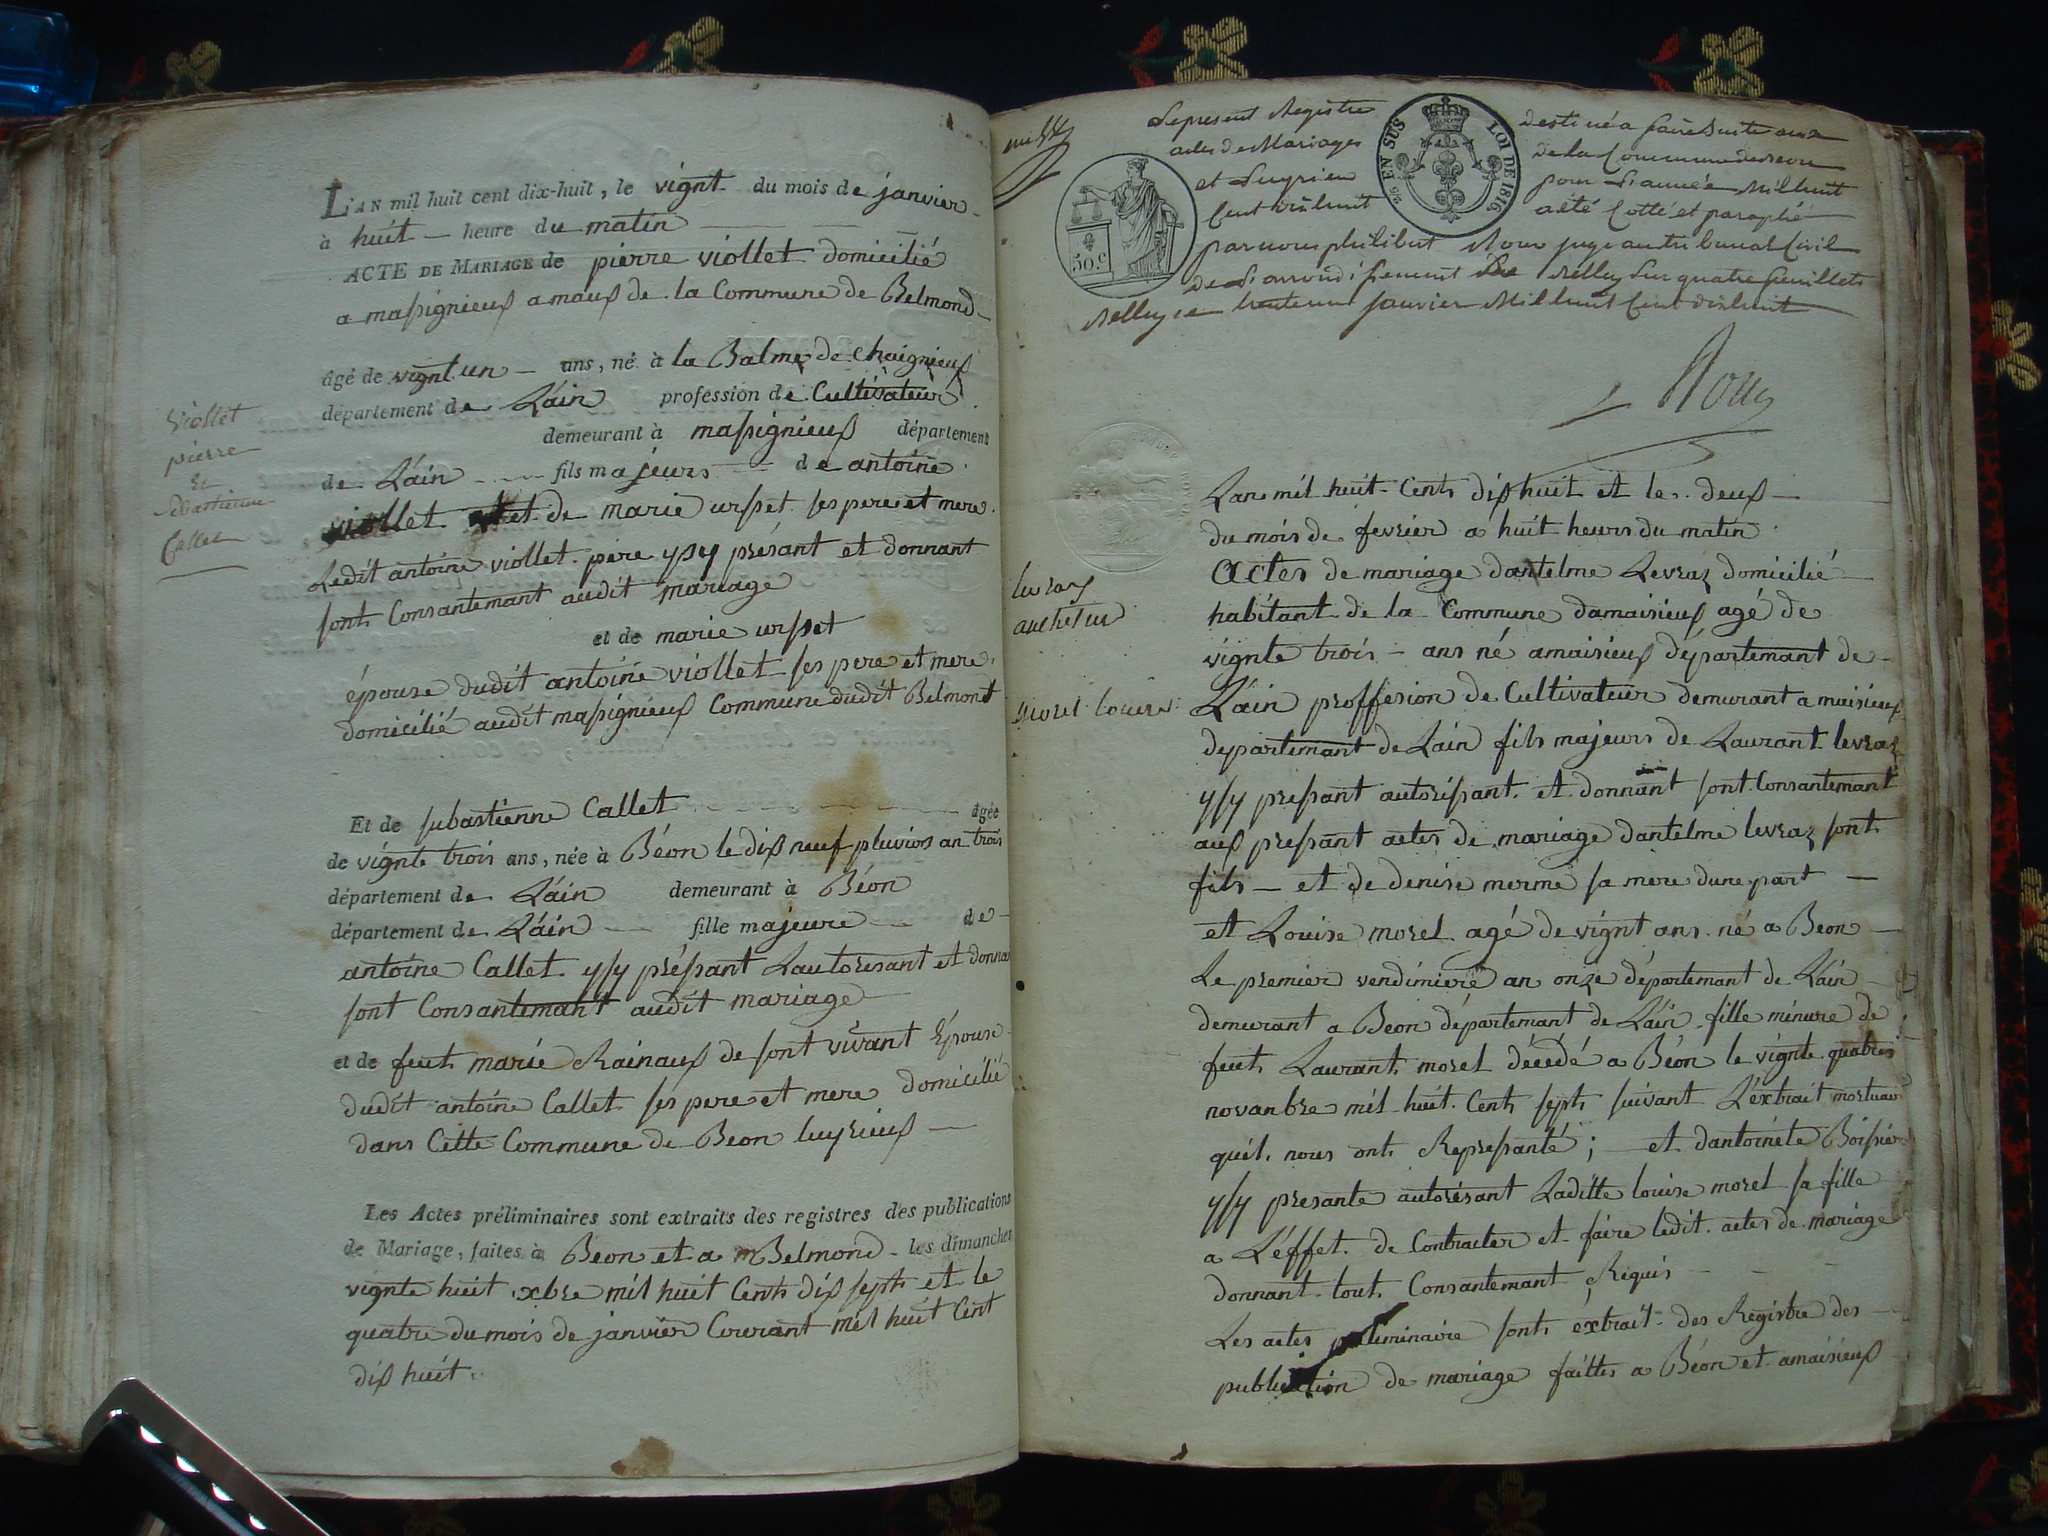 L'AN mil huit cent dix-huit, le vignt du mois de janvier
à huit heure du matin
ACTE DE MARIAGE de pierre viollet domicilié
a massignieux amaux de la Commune de Belmond
âgé de vignt un ans, né à la Balme de Chaignieux
département de Láin profession de Cultivateur
demeurant à massignieux département
de Láin fils majeurs de antoine
viollet et de marie urset ses pere et mere
Ledit antoine viollet pere yssy présant et donnant
sont Consantemant audit mariage
et de marie urset
épouse dudit antoine viollet ses pere et mere
domicilié audit massignieux Commune dudit Belmont
viollet
pierre
et
sebastienne
Callet
Et de sebastienne Callet âgée
de vignte trois ans, née à Béon le dix neuf pluvios an trois
département de Láin demeurant à Béon
département de Láin fille majeure de
antoine Callet yssy préssant Lautorisant et donnan
sont Consantemant audit mariage
et de feut marie Rainaux de sont vivant Épouse
dudit antoine Callet ses pere et mere domicilié
dans Cette Commune de Beon luyrieux
Les Actes préliminaires sont extraits des registres des publications
de Mariage, faites à Beon et a Belmond les dimanches
vignte huit xbre mil huit Cents dix septs et le
quatre du mois de janvier Courant mil huit Cent
dix huit
Le present Registre destiné a faire suite aux
actes de Mariages de la Commune de Beon
et Luyrieu pour L'année Mil huit
Cent dix huit a eté Cotté et paraphé
par nous philibert Roux juge au tribunal Civil
de L'arrondissement de Belley sur quatre feuillets
Belley ce trente un janvier Mil huit Cent dix huit
Roux
50.c
25 EN SUS LOI DE 1816
Lan mil huit Cents dix huit et le deux
du mois de fevrier a huit heurs du matin
Actes de mariage dantelme Levraz domicilié
habitant de la Commune damaisieux agé de
vignte trois ans né amaisieux départemant de
Láin proffesion de Cultivateur demurant a maisieux
departemant de Lain fils majeurs de Laurant levraz
yssy pressant autorissant et donnant sont Consantemant
aux pressant actes de mariage dantelme levraz sont
fils et de denise merme sa mere dune part
et Louise morel agé de vignt ans né a Béon
Le premier vendimiere an onze départemant de Láin
demurant a Beon départemant de Láin fille minure de
feut Laurant morel décedé a Béon le vignte quatres
novanbre mil huit Cents septs suivant L'extrait mortuai
quil nous onts Represanté; et dantoinete Boissier
yssy presante autorisant Laditte louise morel sa fille
a L'éffet de Contracter et faire ledit actes de mariage
donnant tout Consantemant Riquis
Les actes preliminaire sonts éxtrait des Registre des
publication de mariage faittes a Béon et amaisieux
levraz
anthelme
morel louise